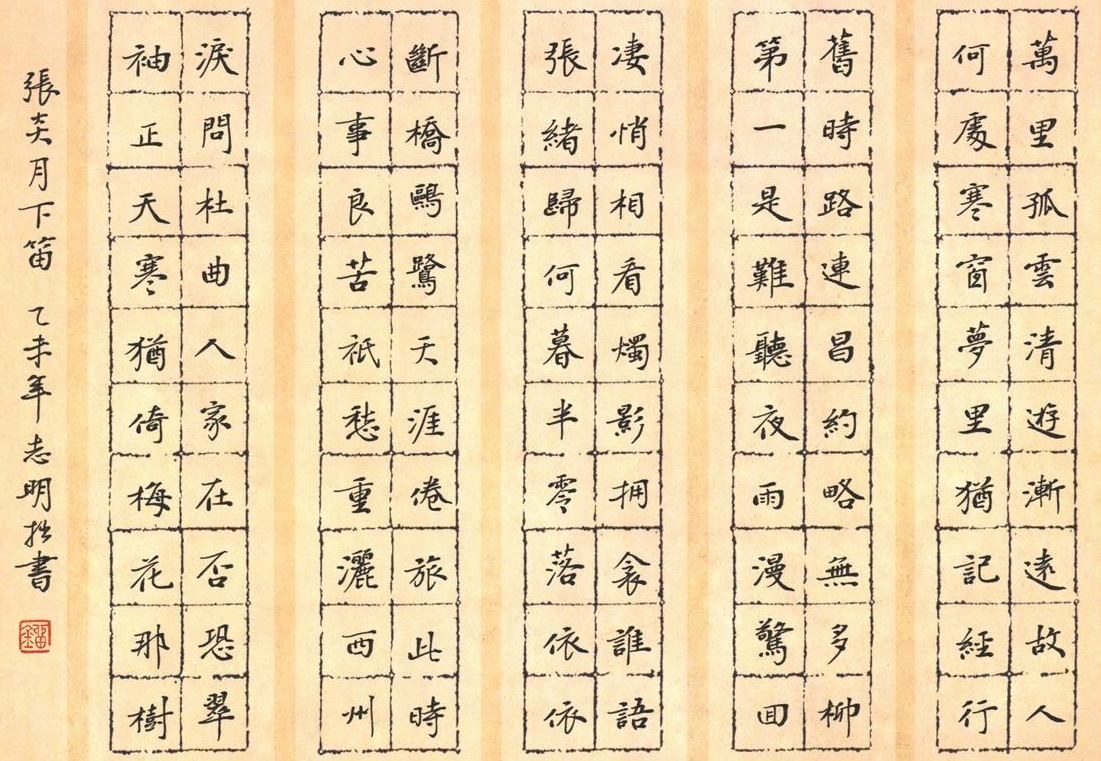 萬里孤雲清遊漸遠故人
何處寒窗夢里猶記經行
舊時路連昌約略無多柳
第一是難聽夜雨漫驚回
凄悄相看燭影拥衾誰語
張緒歸何暮半零落依依
斷橋鷗鷺天涯倦旅此時
心事良苦衹愁重灑西州
淚問杜曲人家在否恐翠
袖正天寒猶倚梅花那樹
張炎月下笛 乙未年志明拙書